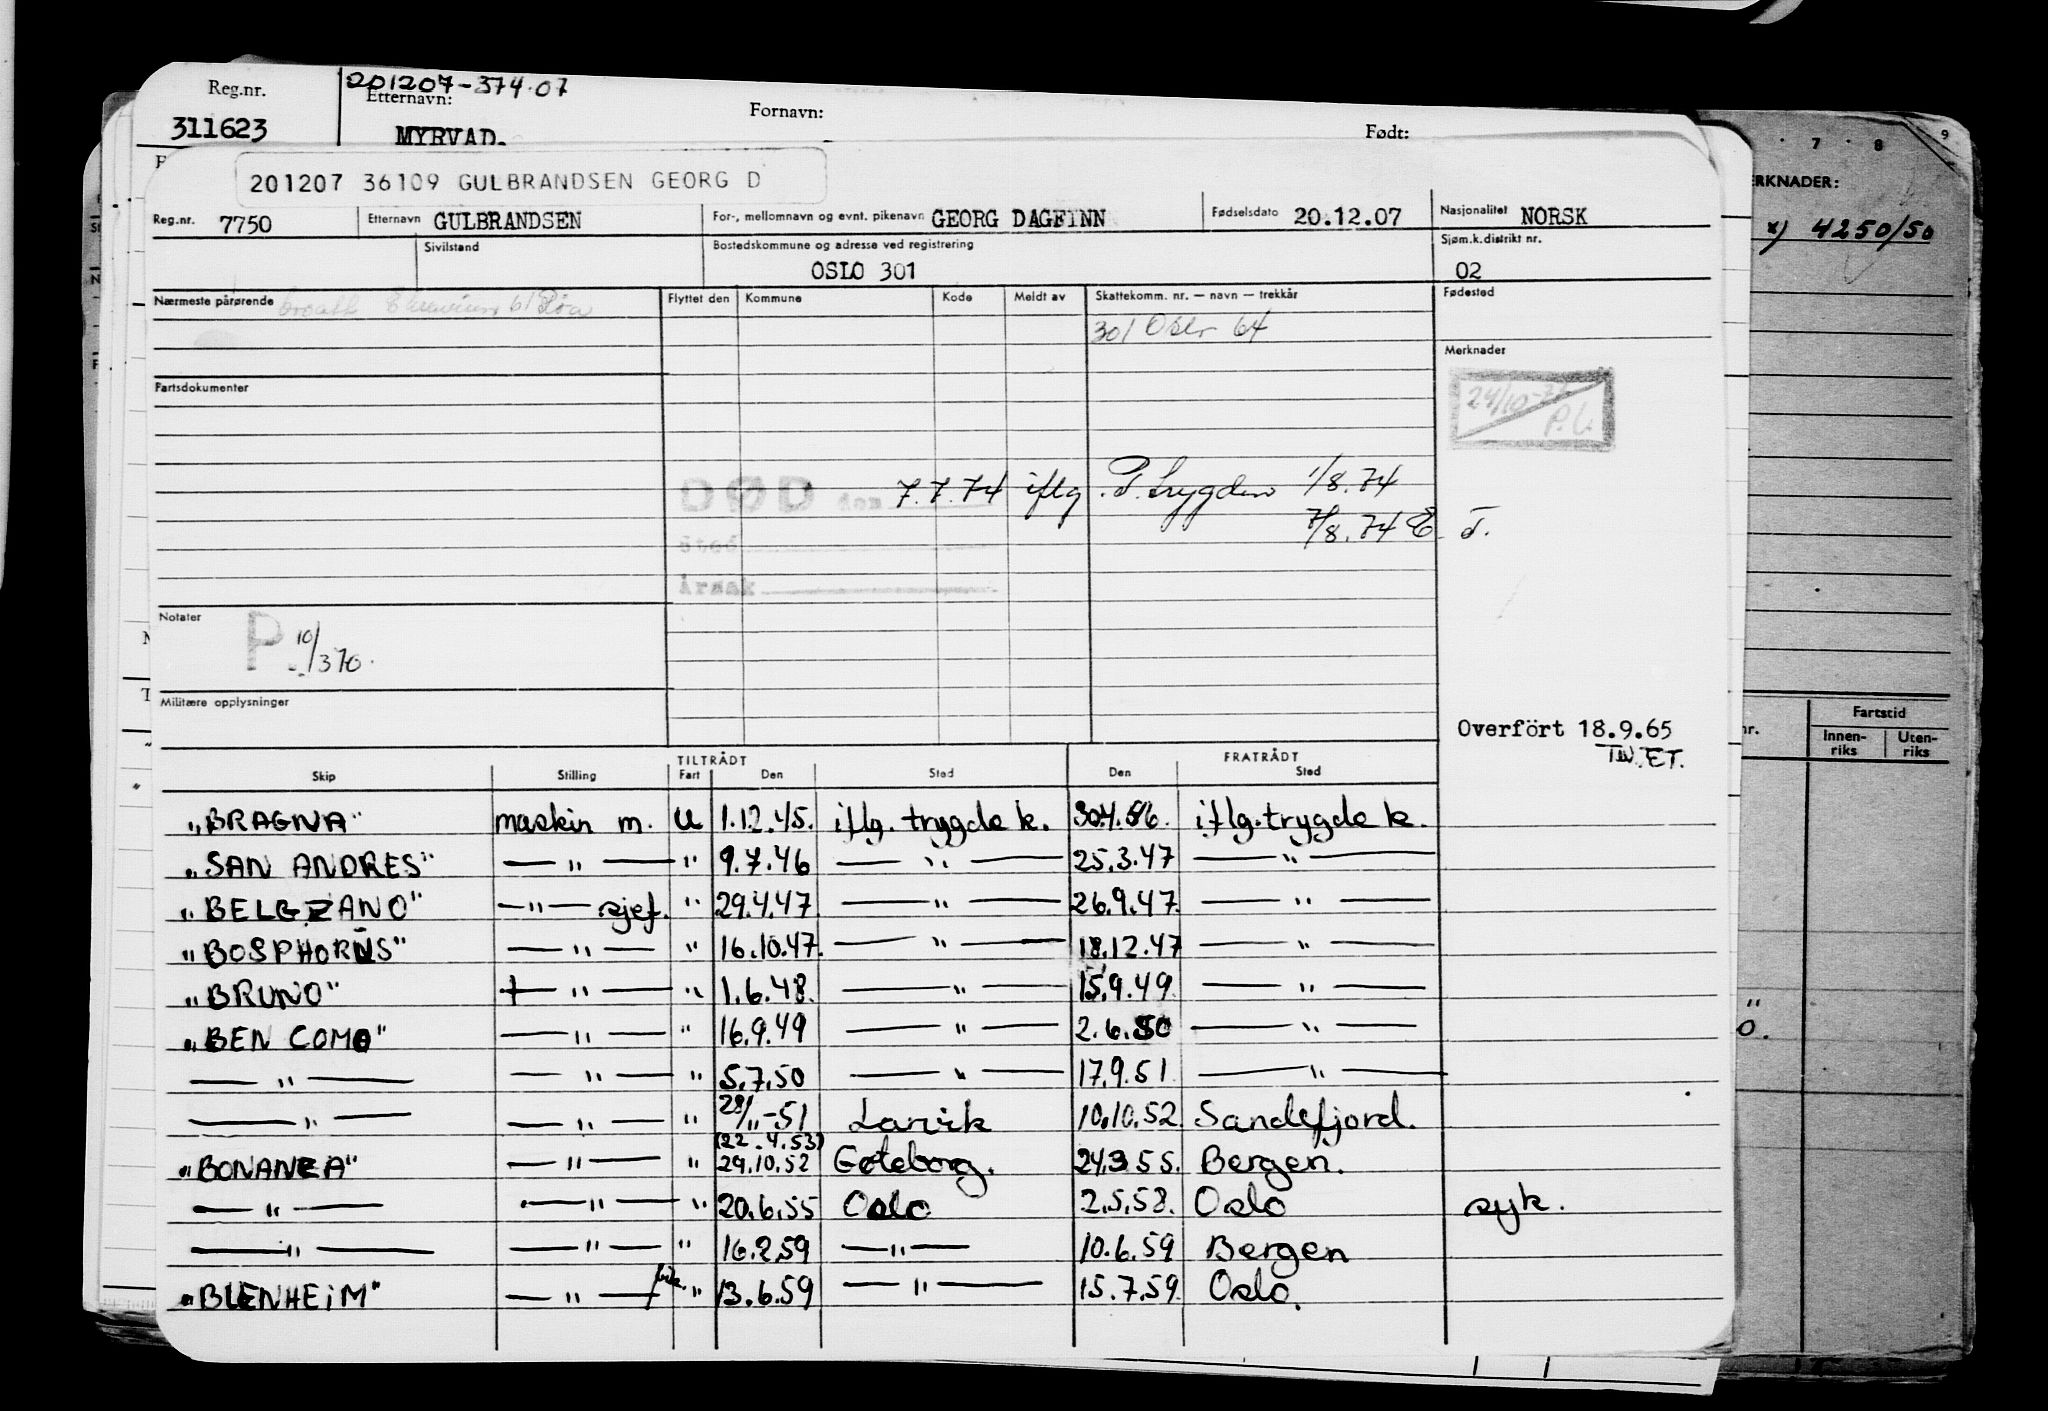 Reg.nr. 201207-374.07
Etternavn: Fornavn: Født:
311623 MYRVAD.
201207 36109 GULBRANDSEN GEORG D
Reg.nr. 7750 Etternavn GULBRANDSEN For-, mellomnavn og evnt. pikenavn GEORG DAGFINN Fødselsdato 20.12.07 Nasjonalitet NORSK
Sivilstand Bostedskommune og adresse ved registrering Sjøm.k.distrikt nr.
OSLO 301 02
Nærmeste pårørende Flyttet den Kommune Kode Meldt av Skattekomm. nr. — navn — trekkår Fødested
301 Oslo 64
Merknader
Fartsdokumenter
24/10-7
P.L.
DØD den 7.7.74 iflg. P.trygden 1/8.74
7/8.74 E.T.
Sted
Årsak
Notater
P. 10/370.
Militære opplysninger
Overført 18.9.65
TW.ET.
TILTRÅDT FRATRÅDT
Skip Stilling Fart Den Sted Den Sted
"BRAGNA" maskin m. U 1.12.45. iflg. trygde k. 30.4.46. iflg. trygde k.
"SAN ANDRES" — " — " 9.7.46 — " — 25.3.47 — " —
"BELGRANO" — " — sjef. " 29.4.47 — " — 26.9.47. — " —
"BOSPHORUS" — " — " 16.10.47. — " — 18.12.47 — " —
"BRUNO" — " — " 1.6.48. — " — 15.9.49. — " —
"BEN COMO" — " — " 16.9.49 — " — 2.6.50 — " —
— " — — " — " 5.7.50 — " — 17.9.51 — " —
— " — — " — " 28/11-51 Larvik 10.10.52. Sandefjord.
(22.4.53)
"BONANZA" — " — " 29.10.52 Gøteborg. 24.3.55. Bergen.
— " — — " — " 20.6.55 Oslo 2.5.58. Oslo syk.
— " — — " — " 16.2.59 — " — 10.6.59 Bergen
"BLENHEIM" — " — vik. " 13.6.59 — " — 15.7.59. Oslo.
7 8 9
ERKNADER:
x) 4250/50
Fartstid
nr. Innen-riks Uten-riks